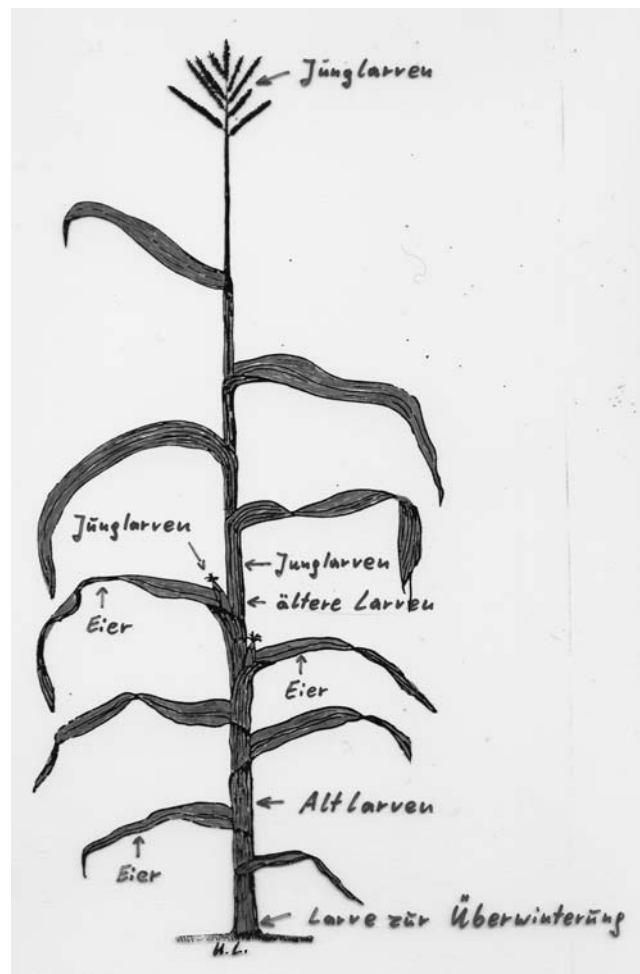 Junglarven
Junglarven
Junglarven
ältere Larven
Eier
Eier
Altlarven
Eier
Larve zur Überwinterung
H.L.